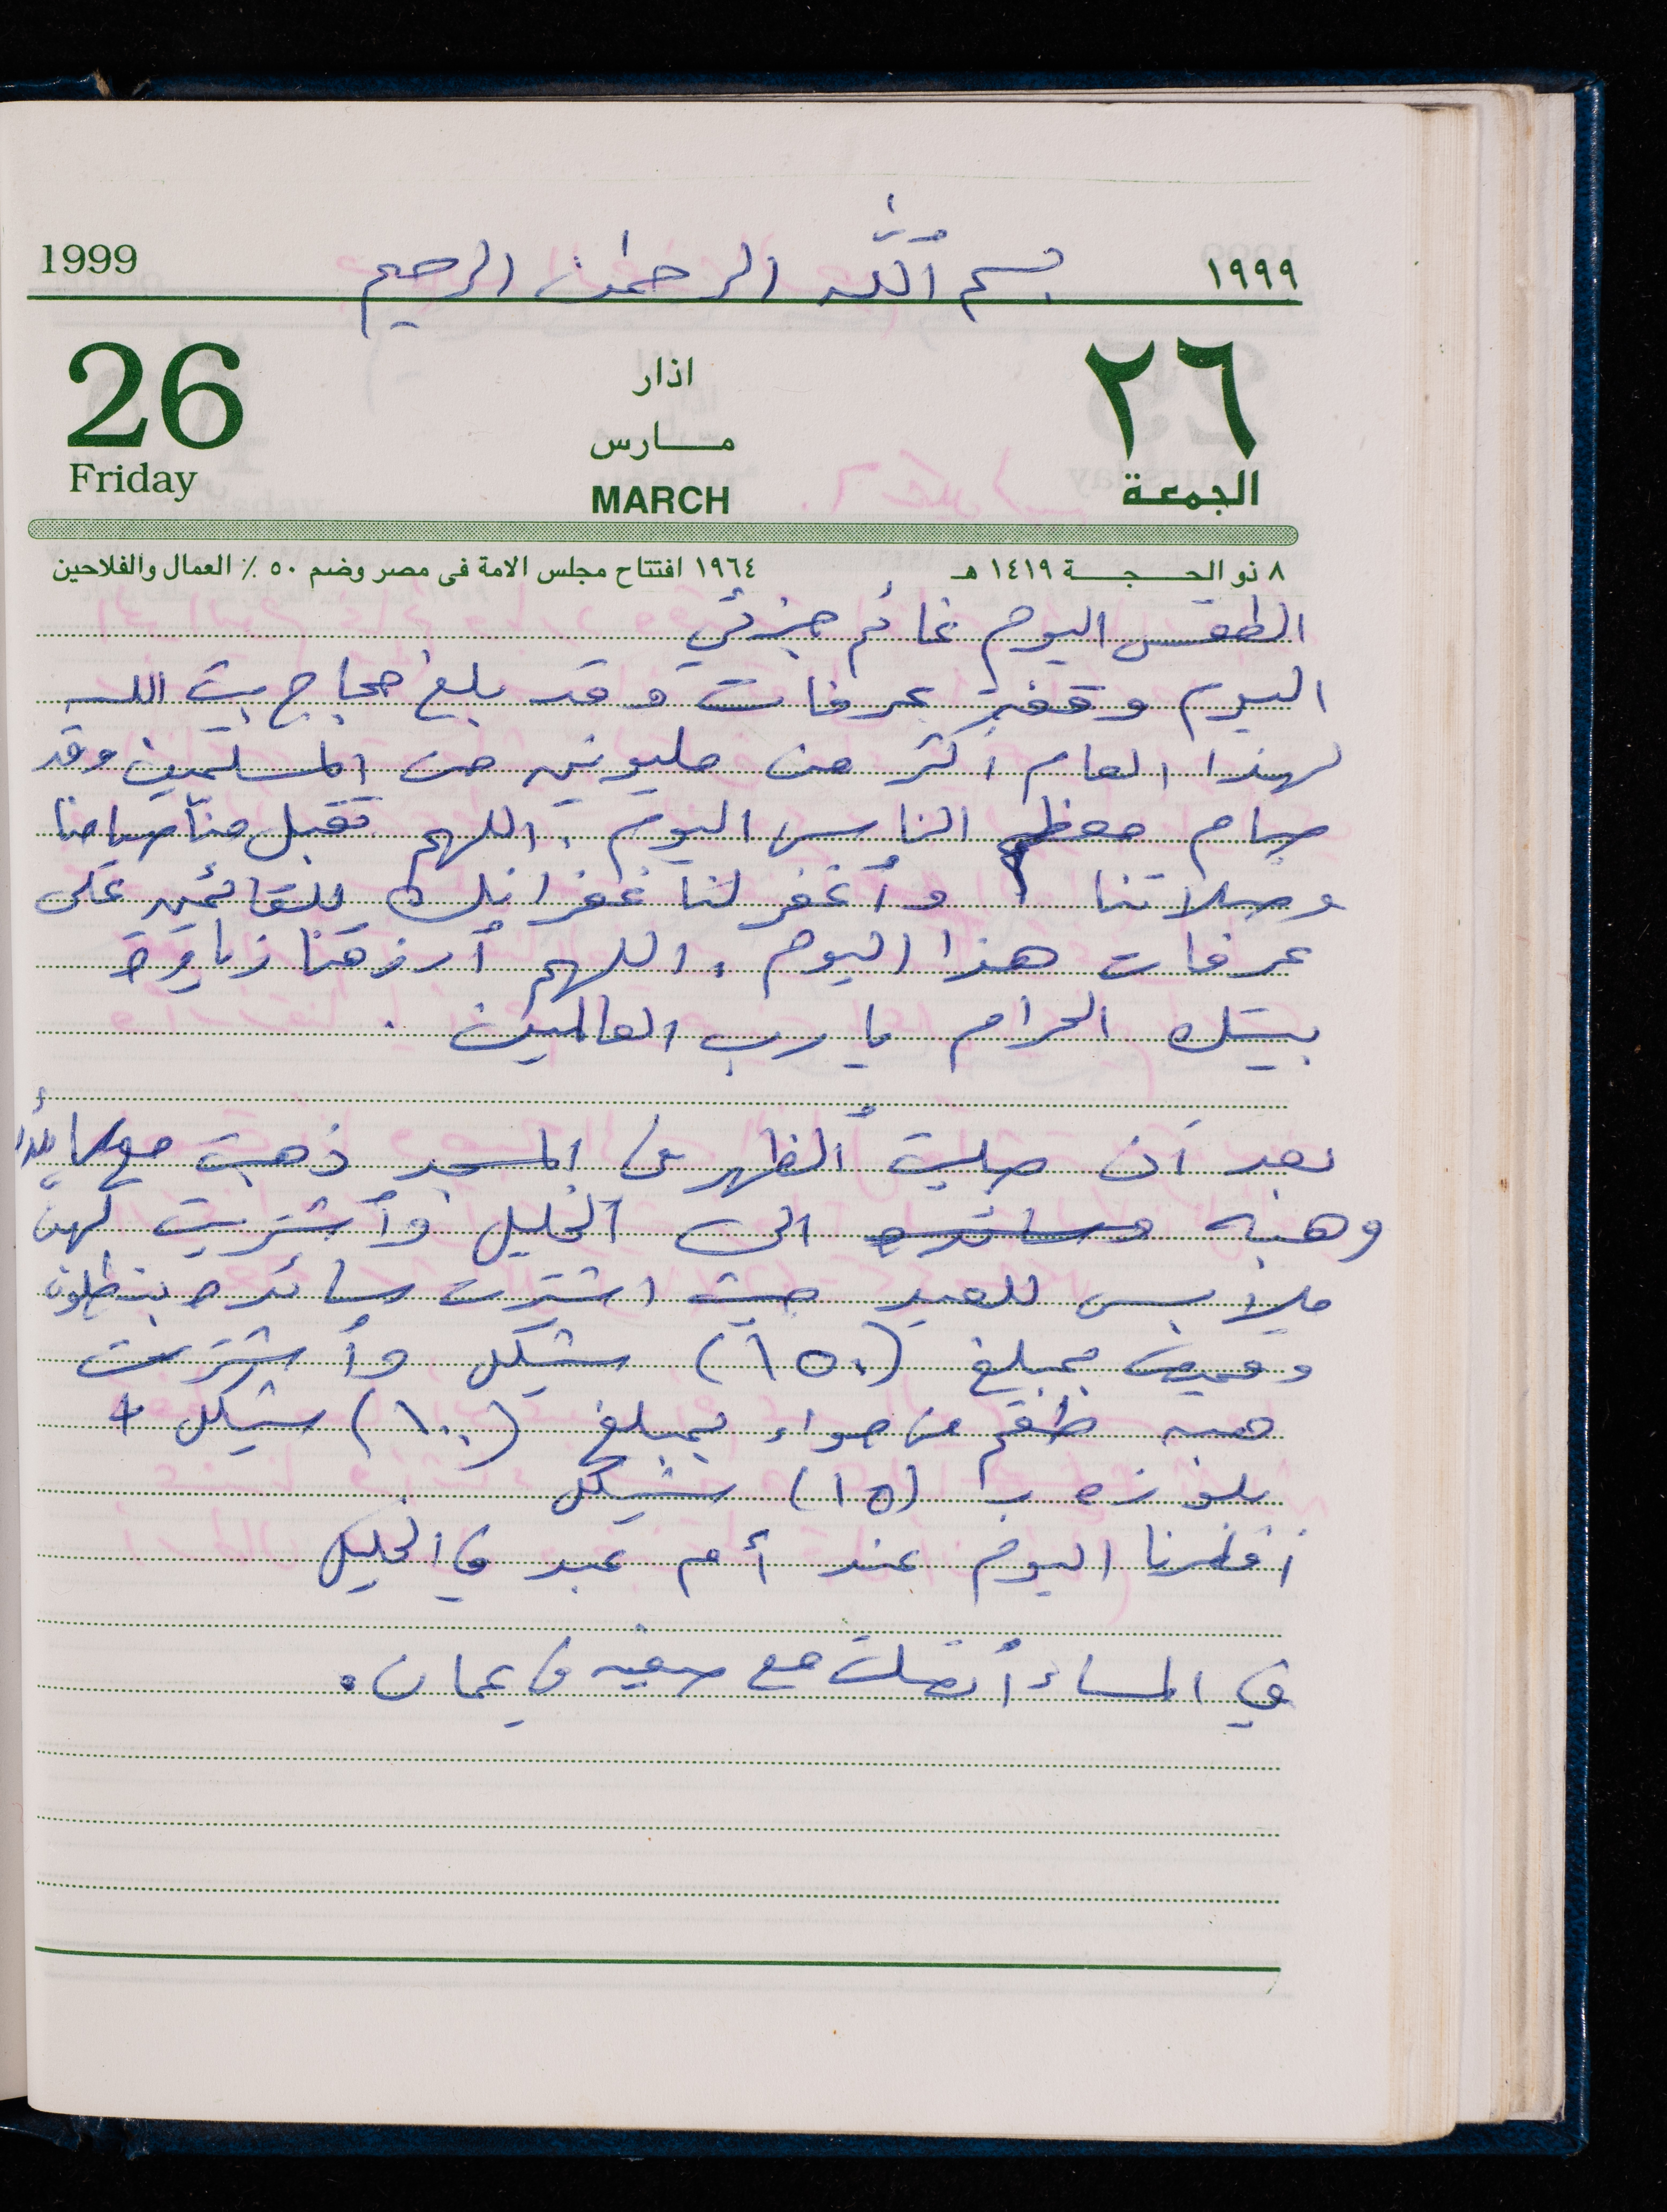 بسم الله الرحمن الرحيم
1999 ١٩٩٩
26 اذار ٢٦
مارس
Friday MARCH الجمعة
٨ ذو الحجة ١٤١٩ هـ ١٩٦٤ افتتاح مجلس الامة فى مصر وضم ٥٠ ٪ العمال والفلاحين
الطقس اليوم غائم جزئي
اليوم وقفة عرفات وقد بلغ حجاج بيت الله
لهذا العام أكثر من مليونين من المسلمين وقد
صام معظم الناس اليوم. اللهم تقبل منا صيامنا
وصلاتنا وأغفر لنا غفرانك للقائمين على
عرفات هذا اليوم. اللهم أرزقنا زياره
بيتك الحرام يا رب العالمين.
بعد أن صليت الظهر في المسجد ذهبت مع
وهبه وسائده الى الخليل وأشتريت لهن
ملابس للعيد حيث اشترت سائده بنطلون
وقميص بمبلغ (١٥٠) شيكل وأشترت
هبه طقم من حواء بمبلغ (١٠٠) شيكل +
بلوزه ب (١٥) شيكل
أفطرنا اليوم عند أم عبد في الخليل
في المساء أتصلت مع صفيه في عمان.